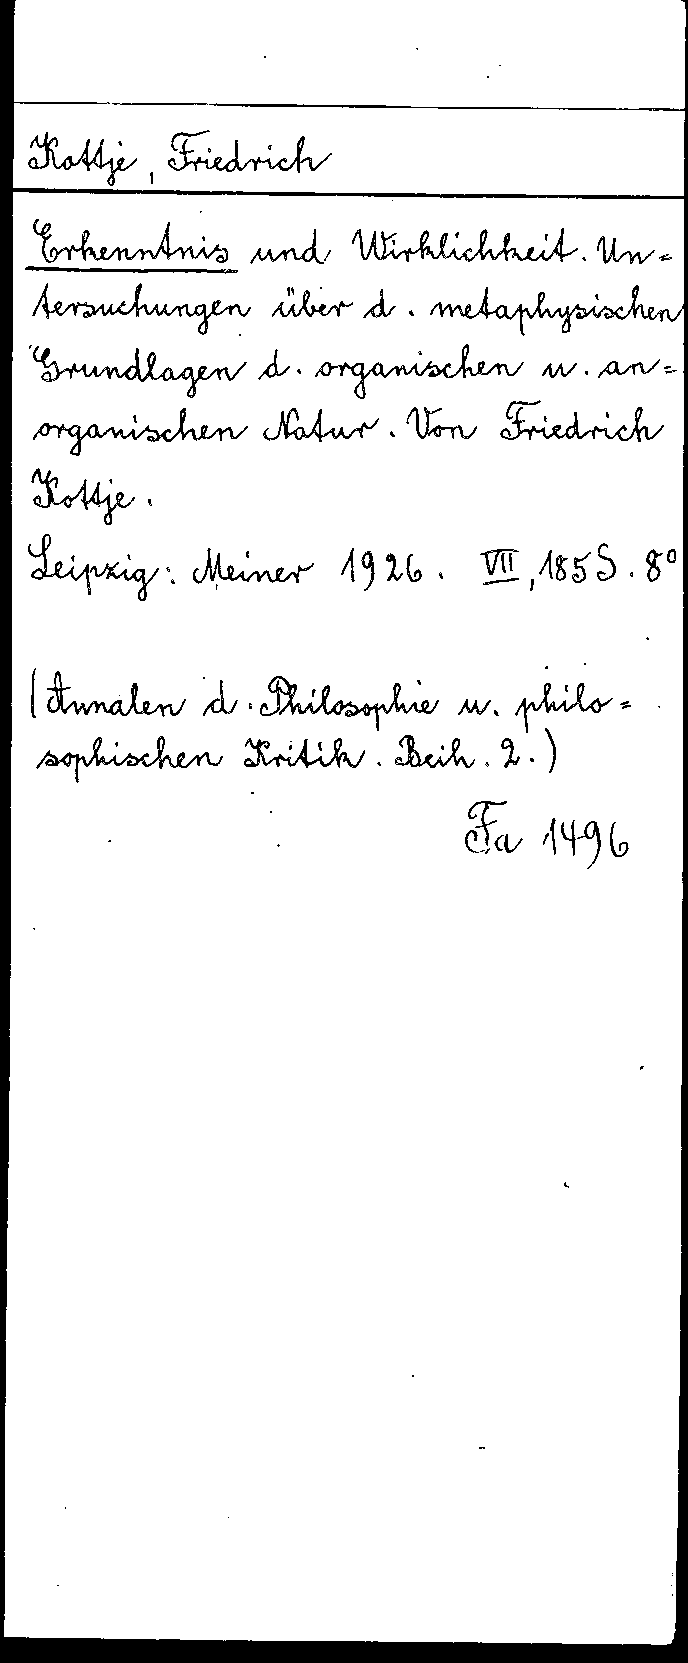 Kottje, Friedrich
Erkenntnis und Wirklichkeit. Un=
tersuchungen über d. metaphysischen
Grundlagen d. organischen u. an=
organischen Natur. Von Friedrich
Kottje.
Leipzig: Meiner 1926. VII, 185 S. 8°
(Annalen d. Philosophie u. philo=
sophischen Kritik. Beih. 2.)
Fa 1496